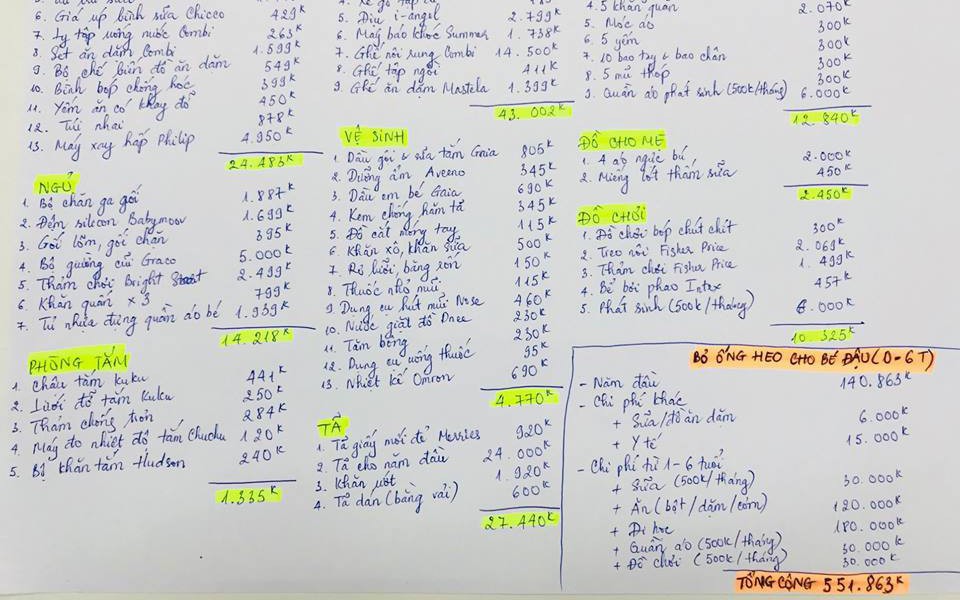 6. Giá úp bình sữa Chicco 429K
7. Ly tập uống nước Combi 263K
8. Set ăn dặm Combi 1.599K
9. Bộ chế biến đồ ăn dặm 549K
10. Bình bóp chống hóc 399K
11. Yếm ăn có khay đổ 450K
12. Túi nhai 878K
13. Máy xay hấp Philip 4.950K
24.483K
NGỦ
1. Bộ chăn ga gối 1.887K
2. Đệm silicon Babymoov 1.699K
3. Gối lõm, gối chặn 395K
4. Bộ giường cũi Graco 5.000K
5. Thảm chơi Bright 2.499K
6. Khăn quấn x 3 799K
7. Tủ nhựa đựng quần áo bé 1.939K
14.218K
PHÒNG TẮM
1. Chậu tắm Kuku 441K
2. Lưới đỡ tắm Kuku 250K
3. Thảm chống trơn 284K
4. Máy đo nhiệt độ tắm Chuchu 120K
5. Bộ khăn tắm Hudson 240K
1.335K
5. Địu i-angel 2.799K
6. Máy báo khóc Summer 1.738K
7. Ghế nôi rung Combi 14.500K
8. Ghế tập ngồi 411K
9. Ghế ăn dặm Mastela 1.399K
43.002K
VỆ SINH
1. Dầu gội & sữa tắm Gaia 805K
2. Dưỡng ẩm Aveeno 345K
3. Dầu em bé Gaia 690K
4. Kem chống hăm tã 345K
5. Đồ cắt móng tay 115K
6. Khăn xô, khăn sữa 500K
7. Rơ lưỡi, băng rốn 150K
8. Thuốc nhỏ mũi 115K
9. Dụng cụ hút mũi Nose 460K
10. Nước giặt đồ Dnee 230K
11. Tăm bông 230K
12. Dụng cụ uống thuốc 95K
13. Nhiệt kế Omron 690K
4.770K
TÃ
1. Tã giấy mới đẻ Merries 920K
2. Tã cho năm đầu 24.000K
3. Khăn ướt 1.920K
4. Tã dán (bằng vải) 600K
27.440K
4. 5 khăn quấn 2.070K
5. Móc áo 300K
6. 5 yếm 300K
7. 10 bao tay & bao chân 300K
8. 5 mũ thóp 300K
9. Quần áo phát sinh (500K/tháng) 6.000K
12.840K
ĐỒ CHO MẸ
1. 4 áo ngực bú 2.000K
2. Miếng lót thấm sữa 450K
2.450K
ĐỒ CHƠI
1. Đồ chơi bóp chút chít 300K
2. Treo nôi Fisher Price 2.069K
3. Thảm chơi Fisher Price 1.499K
4. Bể bơi phao Intex 457K
5. Phát sinh (500K/tháng) 6.000K
10.325K
BỎ ỐNG HEO CHO BÉ ĐẬU (0-6T)
- Năm đầu 140.863K
- Chi phí khác
+ Sữa/đồ ăn dặm 6.000K
+ Y tế 15.000K
- Chi phí từ 1-6 tuổi
+ Sữa (500K/tháng) 30.000K
+ Ăn (bột/dặm/cơm) 120.000K
+ Đi học 180.000K
+ Quần áo (500K/tháng) 30.000K
+ Đồ chơi (500K/tháng) 30.000K
TỔNG CỘNG 551.863K